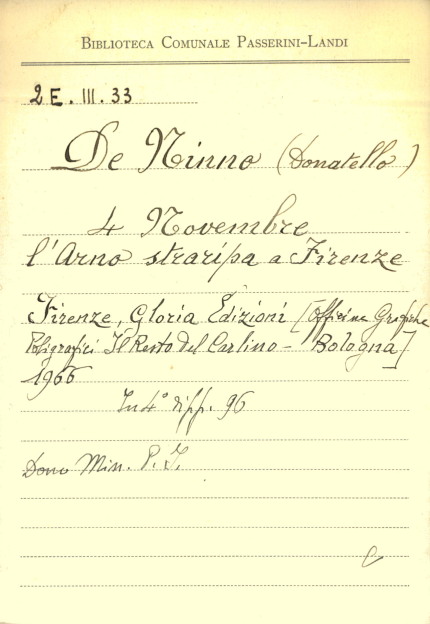 BIBLIOTECA COMUNALE PASSERINI-LANDI
2 E. III. 33
De Ninno (Donatello)
4 Novembre
l'Arno straripa a Firenze
Firenze, Gloria Edizioni [Officine Grafiche
Poligrafici Il Resto del Carlino - Bologna]
1966
In 4° di pp. 96
Dono Min. P. I.
C